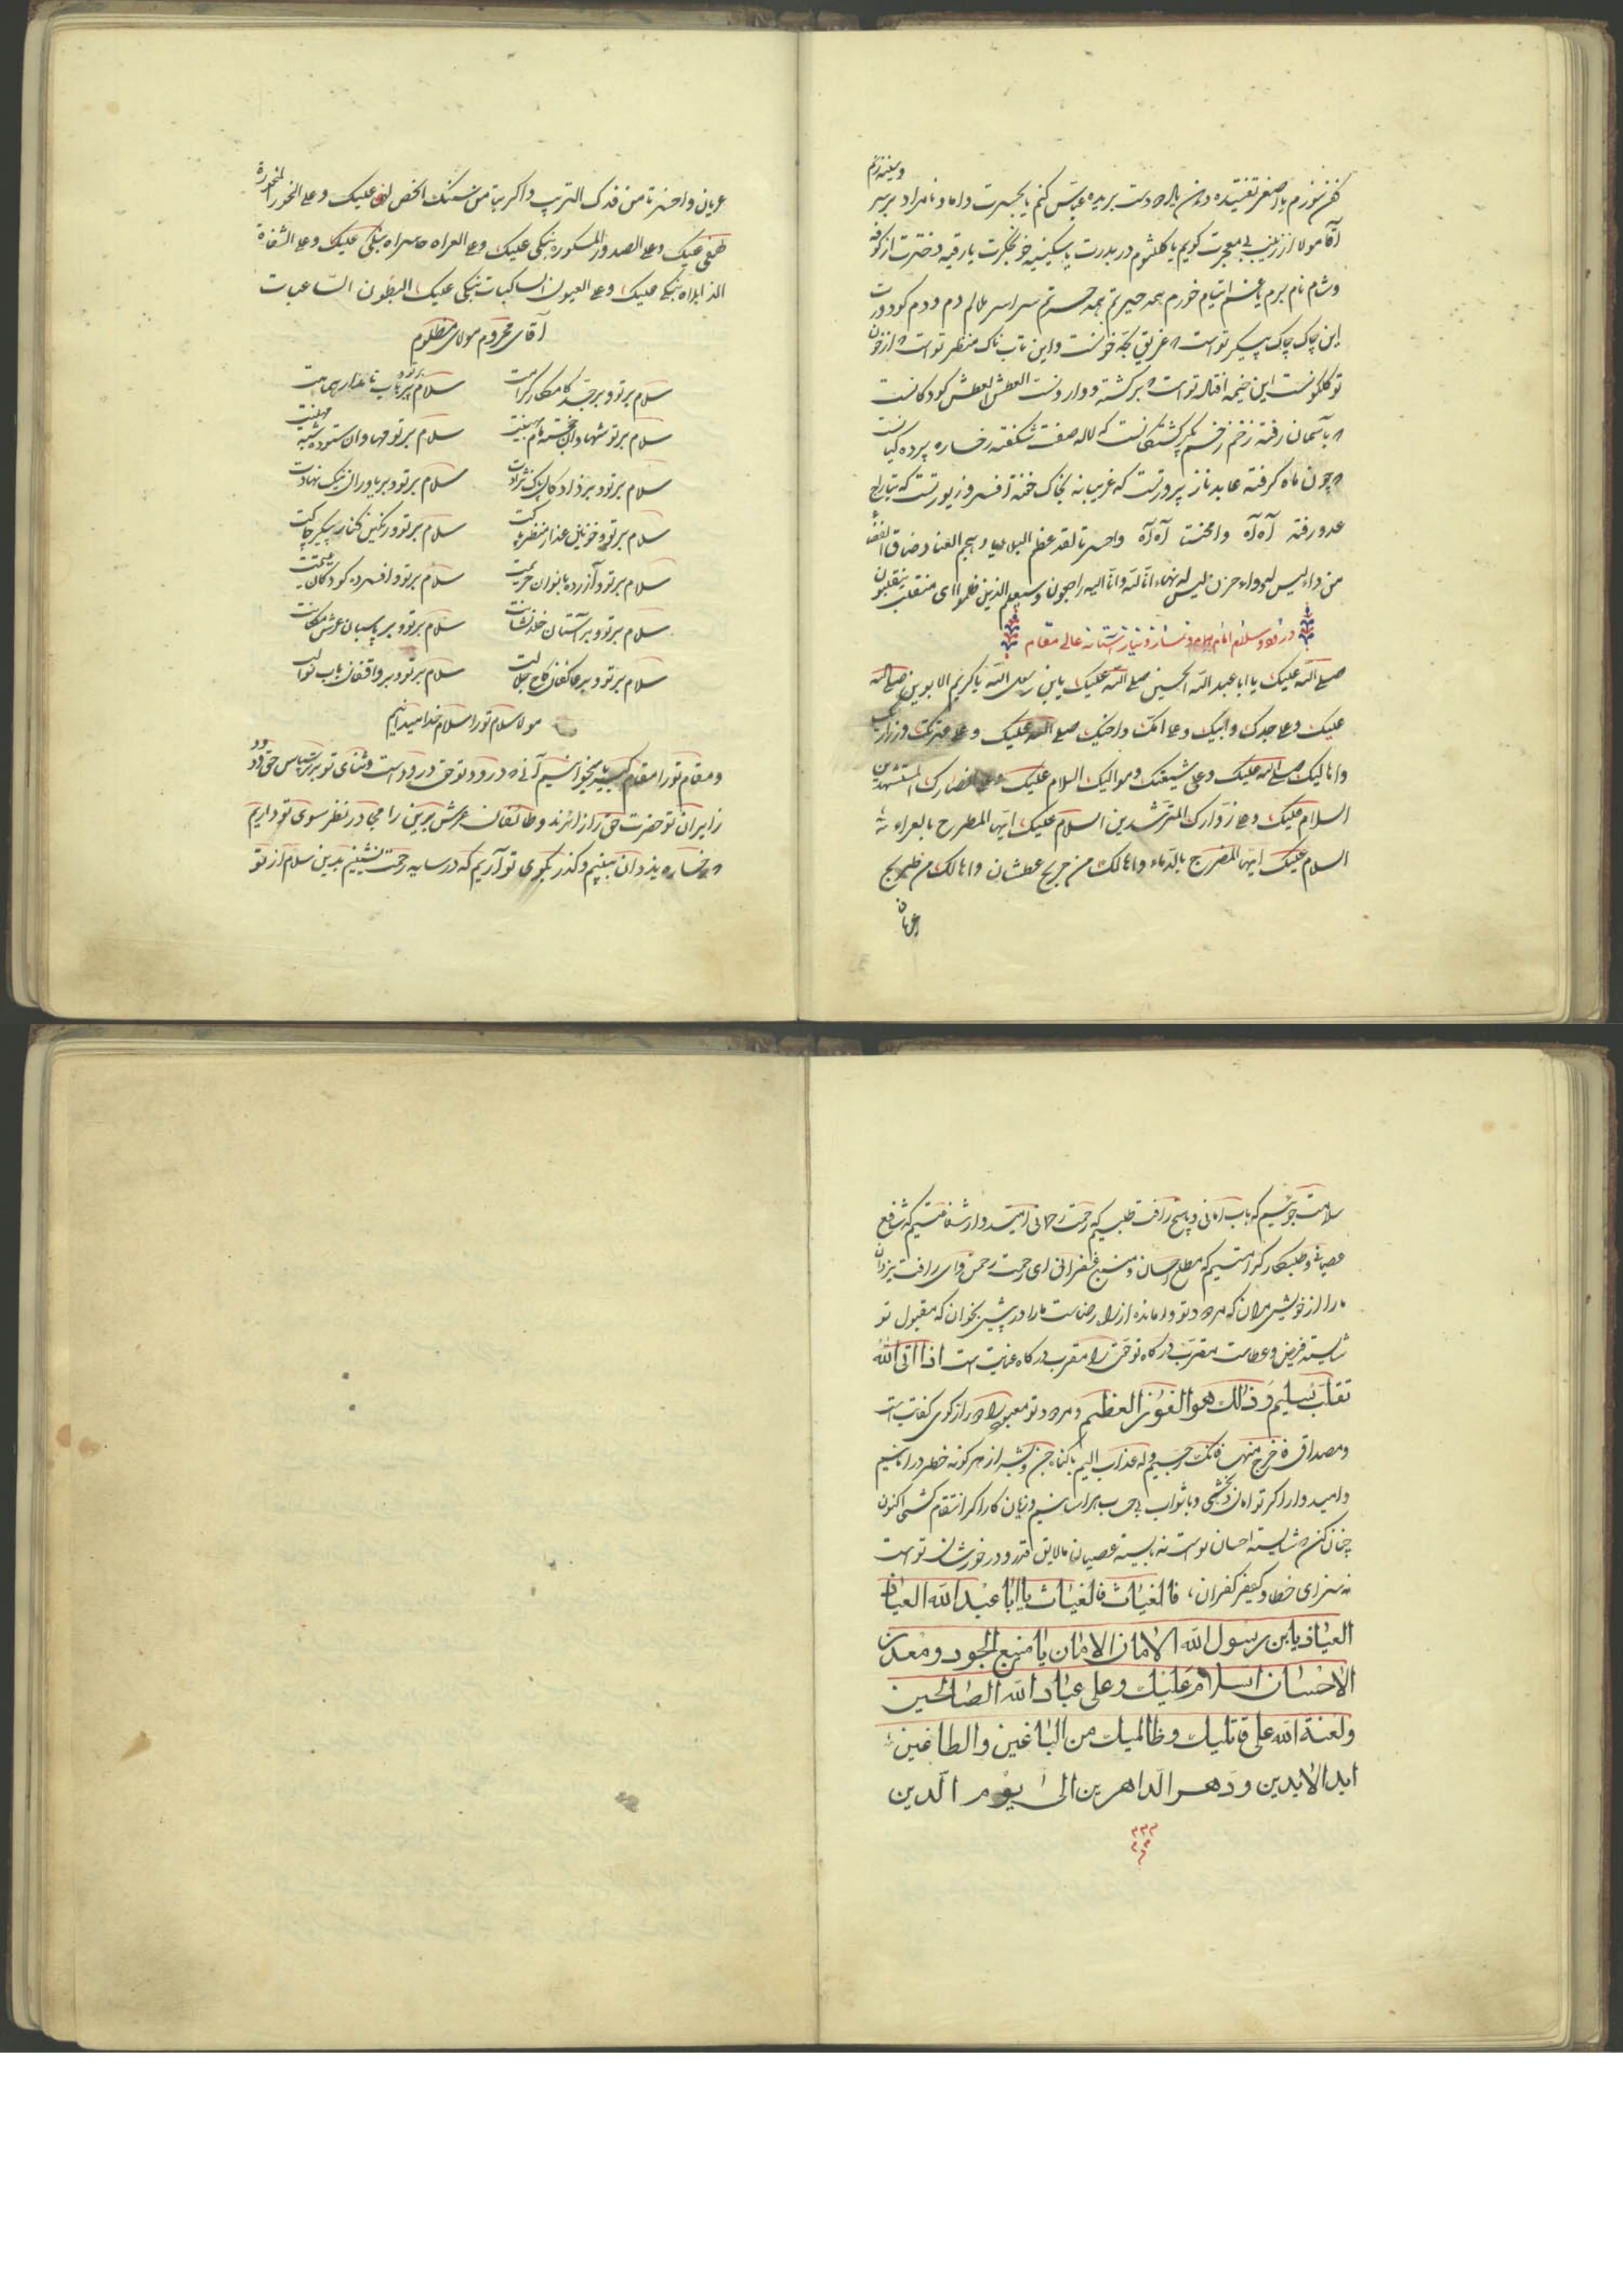 کفن نوزم یا اصغر تفتیده دهن یا از دست بریده عباس کنم یا بحسرت داماد نامراد بر سر و سینه زنم
آقا مولا از زینب بی معجرت گویم یا کلثوم در بدرت یا سکینه خونجگرت یا رقیه دخترت از کوفه
و شام نام برم یا غم ایتام خورم همه حیرتم همه حسرتم سراسر ملالم دم و دم کودورت
این چاک چاک پیکر تو است که غریق لجه خونست و این تابناک منظر تو است که از خون
تو گلگونست این خیمه اقبال تو است که برگشته و واردنست العطش العطش کودکانست
که بآسمان رفته زخم پر کشتگانست که لاله صفت شکفته رخساره پرده گیانست
که چون ماه گرفته عابد ناز پرورتست که غریبانه بخاک خفته افسر و زیورتست که بتاراج
عدو رفته آه آه وامحنت آه آه واحسرتا لقد عظم البلایا و هجم العنا و ضاق الفضا
من داء لیس له دواء و حزن لیس له نهاء انا لله و انا الیه راجعون و سیعلم الذین ظلموا ای منقلب ینقلبون
در درود و سلام امام انام و نثار و نیاز آستانه عالی مقام
صلی الله علیک یا ابا عبد الله الحسین صلی الله علیک یا بن رسول الله یا کریم الابوین صلی الله
علیک و علی جدک و ابیک و علی امک و اخیک صلی الله علیک و علی عترتک و ذراریک
و اهالیک صلی الله علیک و علی شیعتک و موالیک السلام علیک و علی انصارک المستشهدین
السلام علیک و علی زوارک المسترشدین السلام علیک ایها المطرح بالعراء
السلام علیک ایها المضرج بالدماء و اها لک من جریح عطشان و اها لک من طریح
عریان
عریان و احسرتا من خدک التریب و اکربتا من سنک علیک و علی النحور المنحورة
علیک و علی الصدور المکسورة نبکی علیک و علی العراة نبکی علیک و علی الشفاة
الذابلاة نبکی علیک و علی العیون الساکبات نبکی علیک البطون الساغبات
آقای محروم مولای مظلوم
سلام بر تو و بر جد کامکار گرامت سلام بر تو و بر باب نامدار همامت
سلام بر تو شهادان خجسته مام مهینت سلام بر تو مهادان ستوده شبه مهینت
سلام بر تو و بر زادگان پاک نژادت سلام بر تو و بر یاوران نیک نهادت
سلام بر تو و خونین عذار منظر پاکت سلام بر تو و رنگین کنار پیکر چاکت
سلام بر تو و آزرده بانوان حریمت سلام بر تو و افسرده کودکان یتیمت
سلام بر تو و بر آستان خلد نشانت سلام بر تو و بر پاسبان عرش مکانت
سلام بر تو و بر عاکفان کاخ جلالت سلام بر تو و بر واقفان باب نوالت
مولا سلام تو را سلام خدا میدانیم
و مقام تو را مقام کبریا میخوانیم آنی که درود تو حق درود است و ثنای تو برتر سپاس حق ودود
زایران تو حضرت حق را زائرند و طائفان عرش برین را مجاور نظر سوی تو داریم
که رخساره یزدان بینیم و گذر بکوی تو آریم که در سایه رحمت نشینیم بدین سلام از تو
سلامت جوئیم که باب امانی و پاسخ رافت طلبیم که رحمت رحمانی امیدوار شفاعتیم که شافع
عصیانی و طلبکار کرامتیم که مطلع احسان و منبع غفرانی ای رحمت رحمن و ای رافت یزدان
ما را از خویش مران که مردود تو وامانده از راه رضاست ما را در پیش بخوان که مقبول تو
شایسته فیض و عطاست مقرب درگاه تو حق را مقرب درگاه عنایت است اذا اتی الله
بقلب سلیم و ذلک هو الفوز العظیم و مردود تو معبود را از کوی کفایت است
و مصداق فاخرج منها فانک رجیم و له عذاب الیم با گناه جن و بشر از هر گونه خطر در امانیم
و امیدوار اگر تو امان بخشی و با ثواب بی حساب هراسانیم و زیان کار اگر انتقام کشی اکنون
چنان کن که شایسته احسان تو است نه بایسته عصیان ما لایق قدر و در خور شان تو است
نه سزای خطا و کیفر کفران، فالغیاث فالغیاث یا ابا عبد الله العیاذ
العیاذ یا بن رسول الله الامان الامان یا منبع الجود و معدن
الاحسان السلام علیک و علی عباد الله الصالحین
و لعنة الله علی قاتلیک و ظالمیک من الباغین و الطاغین
ابد الابدین و دهر الداهرین الی یوم الدین